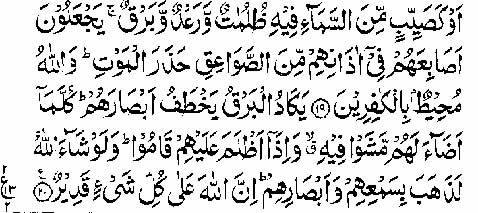 اَوْ كَصَيِّبٍ مِّنَ السَّمَآءِ فِيْهِ ظُلُمٰتٌ وَّرَعْدٌ وَّبَرْقٌ ۚ يَجْعَلُوْنَ
اَصَابِعَهُمْ فِيْٓ اٰذَانِهِمْ مِّنَ الصَّوَاعِقِ حَذَرَ الْمَوْتِ ؕ وَاللّٰهُ
مُحِيْطٌۢ بِالْكٰفِرِيْنَ ﴿۱۹﴾ يَكَادُ الْبَرْقُ يَخْطَفُ اَبْصَارَهُمْ ؕ كُلَّمَآ
اَضَآءَ لَهُمْ مَّشَوْا فِيْهِ ۙ وَاِذَآ اَظْلَمَ عَلَيْهِمْ قَامُوْا ؕ وَلَوْ شَآءَ اللّٰهُ
لَذَهَبَ بِسَمْعِهِمْ وَاَبْصَارِهِمْ ؕ اِنَّ اللّٰهَ عَلٰى كُلِّ شَيْءٍ قَدِيْرٌ ﴿۲۰﴾